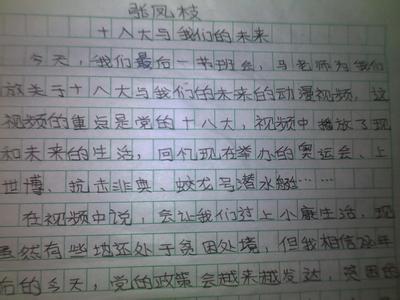 张凤枝
十八大与我们的未来
今天，我们最后一节班会，马老师为我们
放关于十八大与我们的未来的动漫视频，这
视频的重点是党的十八大，视频中播放了现
和未来的生活，回忆现在举办的奥运会、上
世博、抗击非典、蛟龙号潜水艇……
在视频中说，会让我们过上小康生活，现
虽然有些地还处于贫困处境，但我相信
后的今天，党的政策会越来越发达，贫困的